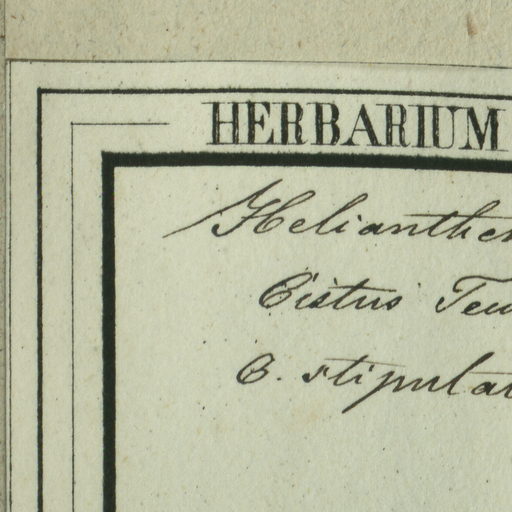 HERBARIUM
Helianthem
Cistus Teu
C. stipular